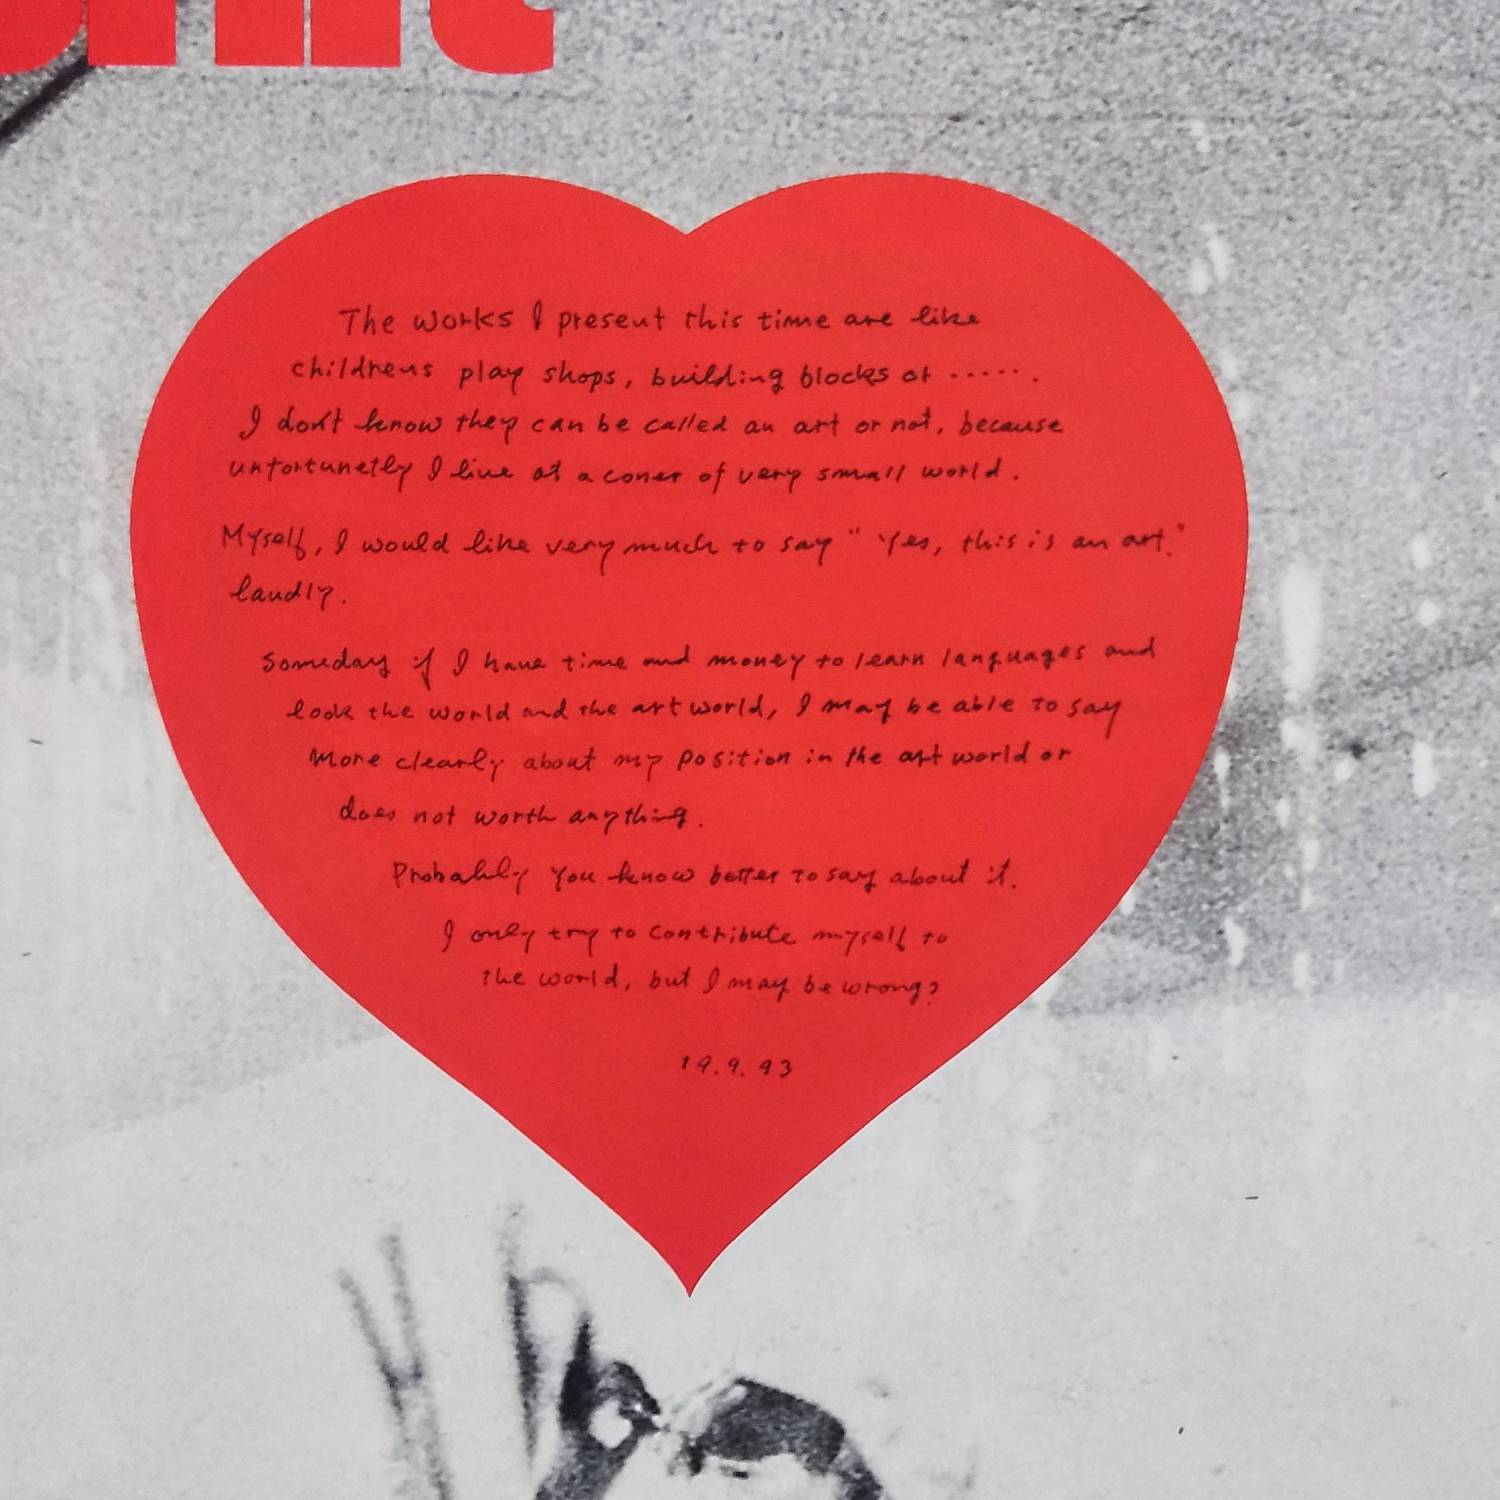 The works I present this time are like
childrens play shops, building blocks or ······
I don't know they can be called an art or not, because
unfortunetly I live at a coner of very small world.
Myself, I would like very much to say " Yes, this is an art."
laudly.
Someday if I have time and money to learn languages and
look the world and the art world, I may be able to say
more clearly about my position in the art world or
does not worth anything.
Probably you know better to say about it.
I only try to contribute myself to
the world, but I may be wrong?
19.9.93